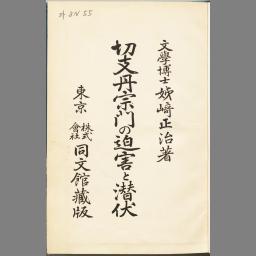 文學博士 姉崎正治著
切支丹宗門の迫害と潜伏
東京 株式會社 同文館藏版